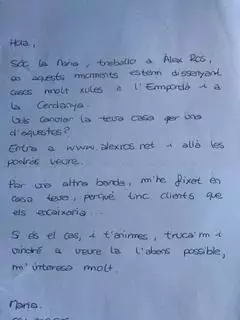 Hola,
Sóc la Maria, treballo a Àlex Ros,
en aquests moments estem dissenyant
cases molt xules a l'Empordà i a
la Cerdanya.
Vols canviar la teva casa per una
d'aquestes?
Entra a www.alexros.net i allà les
podràs veure.
Per una altra banda, m'he fixat en
casa teva, perquè tinc clients que
els encaixaria...
Si és el cas, i t'animes, truca'm i
vindré a veure la l'abans possible,
m'interesa molt.
Maria.